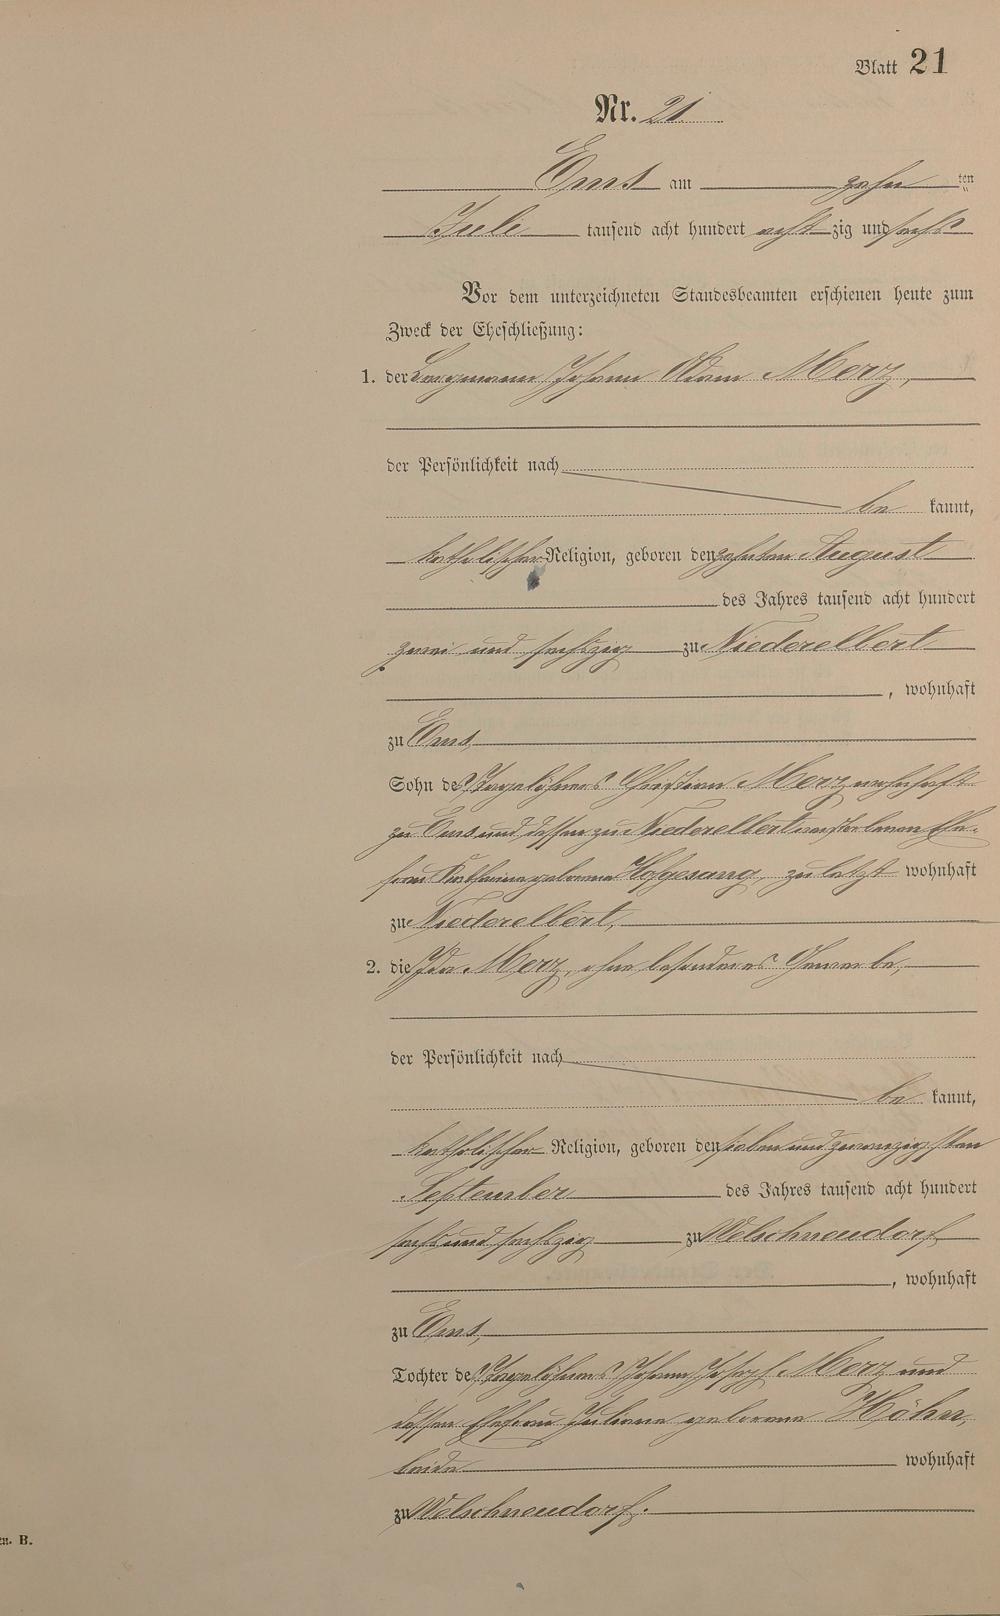 Blatt 21
Nr. 21
Ems am zehn ten
Juli tausend acht hundert acht zig und sechs
Vor dem unterzeichneten Standesbeamten erschienen heute zum
Zweck der Eheschließung:
1. der Bergmann Johann Adam Merz,
der Persönlichkeit nach
be kannt,
katholischer Religion, geboren den zehnten August
des Jahres tausend acht hundert
zwei und sechszig zu Niederelbert
, wohnhaft
zu Ems
Sohn des Tagelöhners Christian Merz wohnhaft
zu Ems und dessen zu Niederelbert verstorbenen Ehe-
frau Katharina geborene Hofgesang, zuletzt wohnhaft
zu Niederelbert,
2. die Ida Merz, ohne besonderes Gewerbe,
der Persönlichkeit nach
be kannt,
katholischer Religion, geboren den sieben und zwanzigsten
September des Jahres tausend acht hundert
sechs und sechszig zu Welschneudorf
, wohnhaft
zu Ems,
Tochter des Tagelöhners Johann Joseph Merz und
dessen Ehefrau Juliane geborene Höher,
beide wohnhaft
zu Welschneudorf.
B.